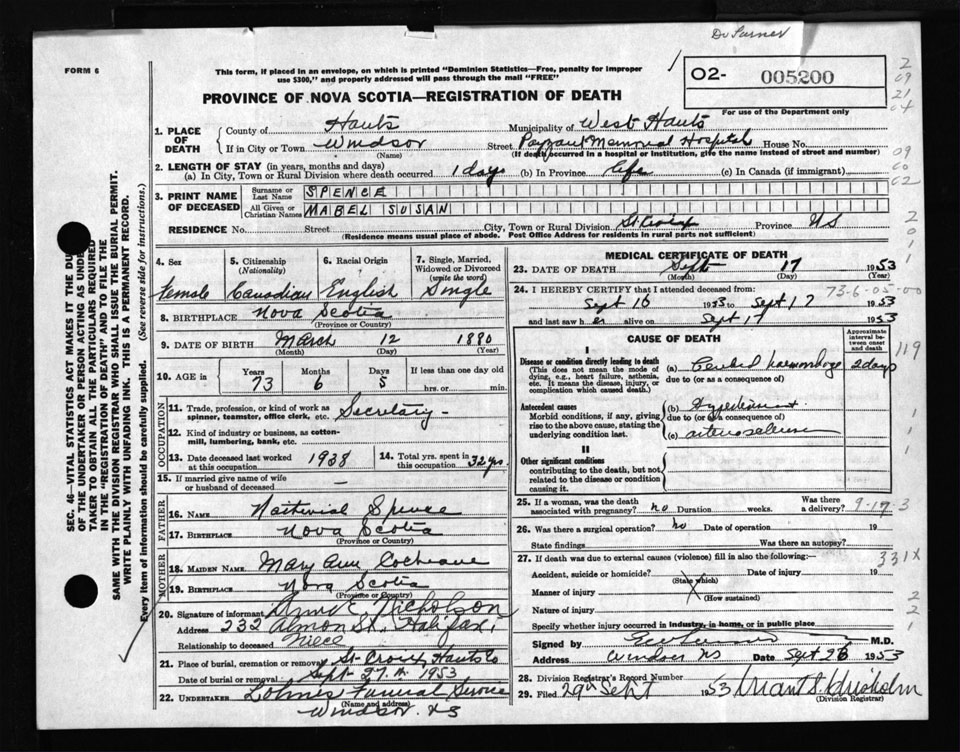 Dr Turner
FORM 6
This form, if placed in an envelope, on which is printed "Dominion Statistics—Free, penalty for improper
use $300," and properly addressed will pass through the mail "FREE"
O2- 005200
For use of the Department only
PROVINCE OF NOVA SCOTIA—REGISTRATION OF DEATH
1. PLACE OF DEATH
County of Hants Municipality of West Hants
If in City or Town Windsor Street Payzant Memorial Hospital House No.
(Name) (If death occurred in a hospital or institution, give the name instead of street and number)
2. LENGTH OF STAY (in years, months and days)
(a) In City, Town or Rural Division where death occurred 1 day (b) In Province Life (c) In Canada (if immigrant)
3. PRINT NAME OF DECEASED
Surname or Last Name SPENCE
All Given or Christian Names MABEL SUSAN
RESIDENCE No. Street City, Town or Rural Division St Croix Province NS
(Residence means usual place of abode. Post Office Address for residents in rural parts not sufficient)
SEC. 46—VITAL STATISTICS ACT MAKES IT THE DU
OF THE UNDERTAKER OR PERSON ACTING AS UNDE
TAKER TO OBTAIN ALL THE PARTICULARS REQUIRED
IN THE "REGISTRATION OF DEATH" AND TO FILE THE
SAME WITH THE DIVISION REGISTRAR WHO SHALL ISSUE THE BURIAL PERMIT.
WRITE PLAINLY WITH UNFADING INK. THIS IS A PERMANENT RECORD.
Every item of information should be carefully supplied. (See reverse side for instructions.)
4. Sex Female
5. Citizenship (Nationality) Canadian
6. Racial Origin English
7. Single, Married, Widowed or Divorced (write the word) Single
8. BIRTHPLACE Nova Scotia
(Province or Country)
9. DATE OF BIRTH March 12 1880
(Month) (Day) (Year)
10. AGE in Years 73 Months 6 Days 5 If less than one day old
hrs. or min.
OCCUPATION
11. Trade, profession, or kind of work as spinner, teamster, office clerk, etc. Secretary
12. Kind of industry or business, as cotton-mill, lumbering, bank, etc.
13. Date deceased last worked at this occupation 1938 14. Total yrs. spent in this occupation 32 yrs
15. If married give name of wife or husband of deceased —
FATHER
16. NAME Spence
17. BIRTHPLACE Nova Scotia
(Province or Country)
MOTHER
18. MAIDEN NAME Mary Ann Cochrane
19. BIRTHPLACE Nova Scotia
(Province or Country)
20. Signature of informant Nicholson
Address 232 Almon St. Halifax
Relationship to deceased Niece
21. Place of burial, cremation or removal St Croix, Hants Co
Date of burial or removal Sept 27th 1953
22. UNDERTAKER Funeral Service
(Name and address)
Windsor NS
MEDICAL CERTIFICATE OF DEATH
23. DATE OF DEATH Sept 17 1953
(Month) (Day) (Year)
24. I HEREBY CERTIFY that I attended deceased from 73-6-05-00
Sept 16 1953 to Sept 17 1953
and last saw her alive on Sept 17 1953
CAUSE OF DEATH
Approximate interval between onset and death
I
Disease or condition directly leading to death
(This does not mean the mode of dying, e.g., heart failure, asthenia, etc. It means the disease, injury, or complication which caused death.)
(a) Cerebral haemorrhage 2 days
due to (or as a consequence of)
Antecedent causes
Morbid conditions, if any, giving rise to the above cause, stating the underlying condition last.
(b) Hypertension
due to (or as a consequence of)
(c) arteriosclerosis
II
Other significant conditions
contributing to the death, but not related to the disease or condition causing it.
25. If a woman, was the death associated with pregnancy? no Duration weeks. Was there a delivery? 9-17 3
26. Was there a surgical operation? no Date of operation 19
State findings Was there an autopsy?
27. If death was due to external causes (violence) fill in also the following:— 331X
Accident, suicide or homicide? Date of injury 19
(State which)
Manner of injury
(How sustained)
Nature of injury
Specify whether injury occurred in industry, in home, or in public place
Signed by M.D.
Address Windsor NS Date Sept 26 1953
28. Division Registrar's Record Number
29. Filed 29th Sept 1953
(Division Registrar)
2
09
21
04
09
60
02
2
0
1
1
119
1
1
2
2
0